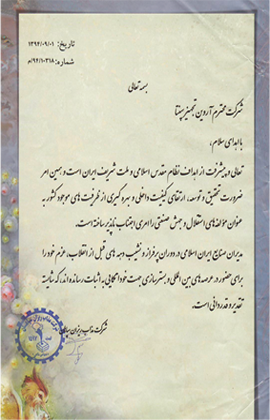 تاریخ: ۱۳۹۴/۰۹/۰۱
شماره: ۹۴/۱۰۲۱۸/م
بسمه تعالی
شرکت محترم آروین تجهیز سپنتا
با اهدای سلام،
تعالی و پیشرفت از اهداف نظام مقدس اسلامی و ملت شریف ایران است و همین امر
ضرورت تحقیق و توسعه، ارتقای کیفیت داخلی و بهره گیری از ظرفیت های موجود کشور به
عنوان مولفه های استقلال و جهش صنعتی را امری اجتناب ناپذیر ساخته است.
مدیران صنایع ایران اسلامی در دوران پر فراز و نشیب دهه های قبل از انقلاب، عزم خود را
برای حضور در عرصه های بین المللی و بسترسازی جهت خود اتکایی به اثبات رسانده اند، که شایسته
تقدیر و قدردانی است.
شرکت قالب ریزان